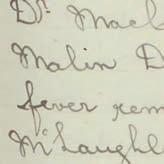 Dr. Macl
Malin D
fever rem
McLaughl